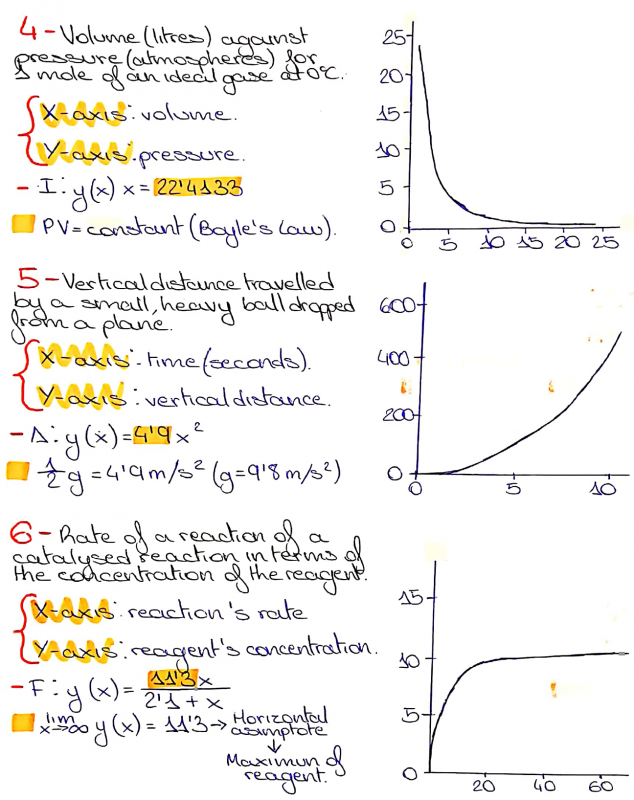 4-Volume (litres) against
pressure (atmospheres) for
1 mole of an ideal gase at 0ºC.
X-axis: volume.
Y-axis: pressure.
- I: y(x) x = 22'4133
PV = constant (Boyle's Law).
25
20
15
10
5
0
0 5 10 15 20 25
5-Vertical distance travelled
by a small, heavy ball dropped
from a plane.
X-axis: time (seconds).
Y-axis: vertical distance.
- A: y(x) = 4'9 x²
1/2 g = 4'9 m/s² (g = 9'8 m/s²)
600
400
200
0
0 5 10
6-Rate of a reaction of a
catalysed reaction in terms of
the concentration of the reagent.
X-axis: reaction's rate
Y-axis: reagent's concentration.
- F: y(x) = 11'3 x / 2'1 + x
lim x→∞ y(x) = 11'3 → Horizontal
asimptote
↓
Maximun of
reagent.
15
10
5
0
20 40 60